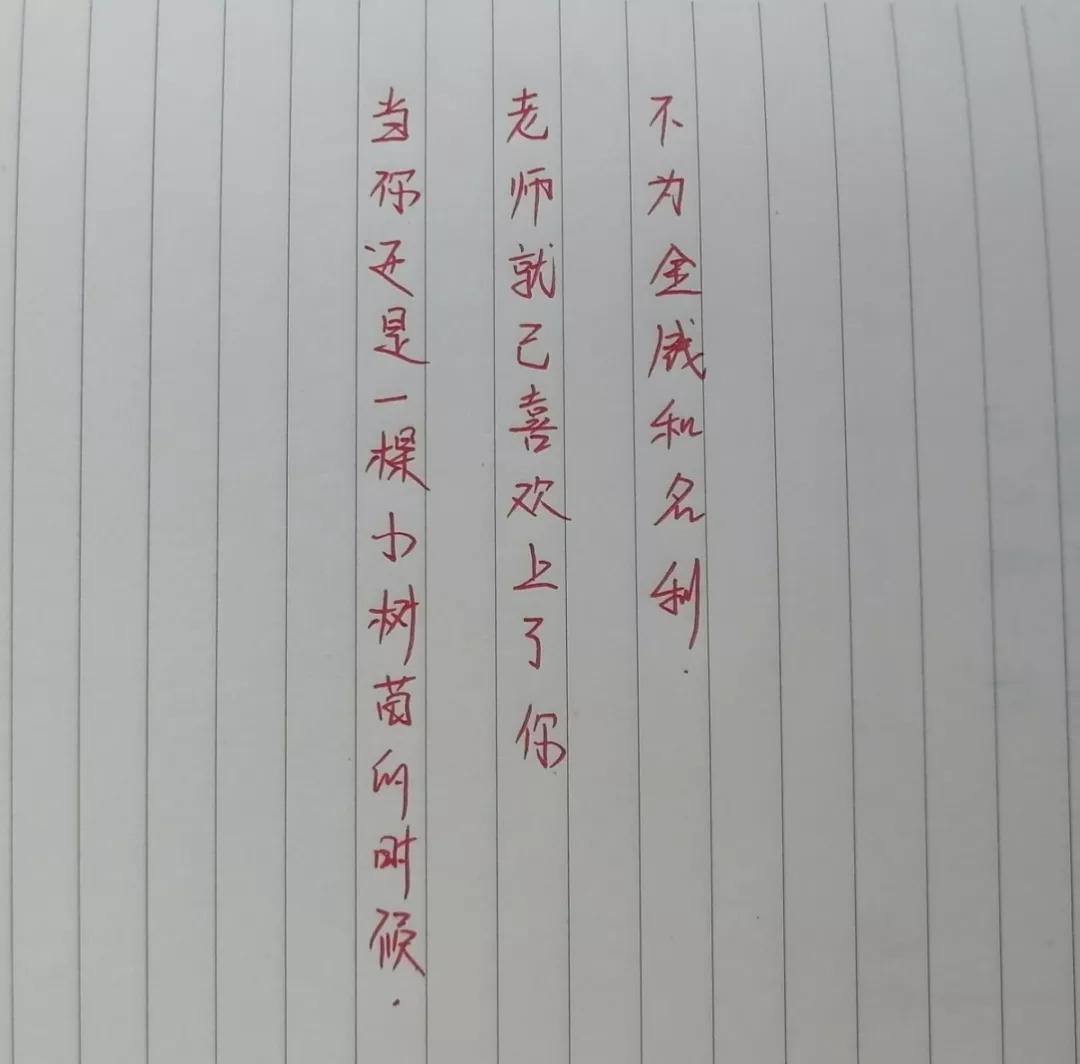 不为金威和名利.
老师就已喜欢上了你
当你还是一棵小树苗的时候.